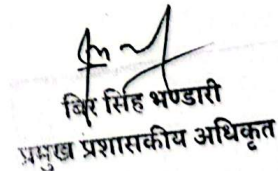 बिर सिंह भण्डारी
प्रमुख प्रशासकीय अधिकृत